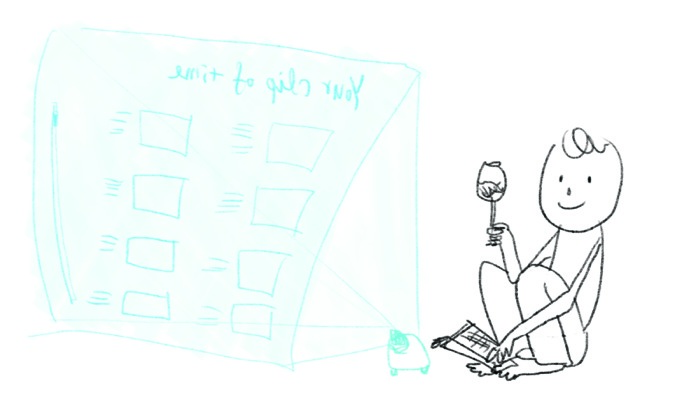 Your clip of time